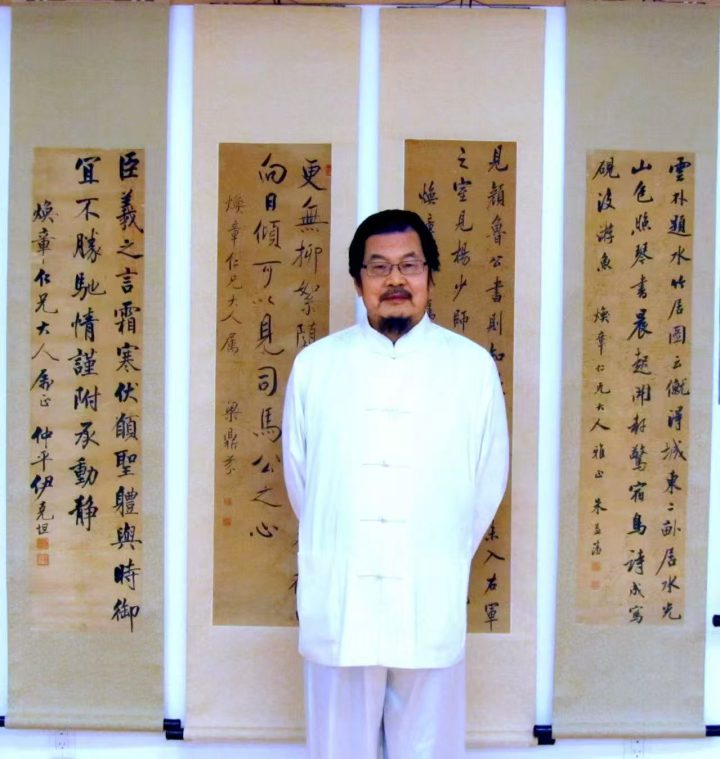 雲林題水竹居圖云僦得城東二畝居水光
山色照琴書晨起開軒驚宿鳥詩成寫
硯沒游魚 煥章仁兄大人雅正 朱益藩
見顏魯公書則知 未入右軍
之室見楊少師
煥章
更無柳絮隨
向日傾可以見司馬公之心
煥章仁兄大人属 梁鼎芬
臣羲之言霜寒伏願聖體與時御
宜不勝馳情謹附承動静
煥章仁兄大人属正 仲平伊克坦